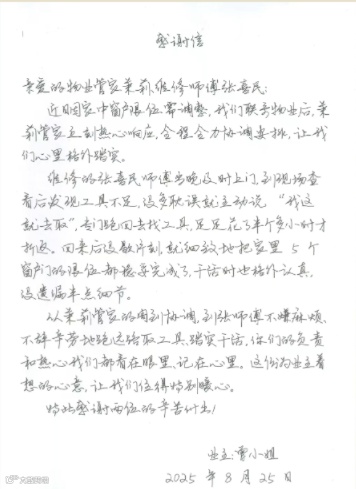 感谢信
亲爱的物业管家茉莉、维修师傅张喜民：
近日因家中窗户限位需调整，我们联系物业后，茉
莉管家立刻热心响应，全程全力协调安排，让我
们心里格外踏实。
维修的张喜民师傅当晚及时上门，到现场查
看后发现工具不足，没多耽误就主动说“我这
就去取”，专门跑回去找工具，足足花了半个多小时才
折返。回来后没歇片刻，就细致地把家里5个
窗户的限位都安装完成了，干活时也格外认真，
没遗漏半点细节。
从茉莉管家的周到协调，到张师傅不嫌麻烦、
不辞辛劳地跑远路取工具、踏实干活，你们的负责
和热心我们都看在眼里、记在心里。这份为业主着
想的心意，让我们住得特别暖心。
特此感谢两位的辛苦付出！
业主：曹小姐
2025年8月25日